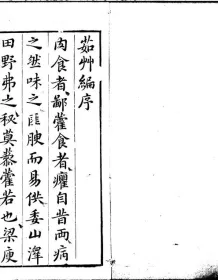 茹艸編序
肉食者鄙藿食者癯自昔兩病
之然味之匪腴而易供委山澤
田野弗之秘莫藜藿若也梁庾